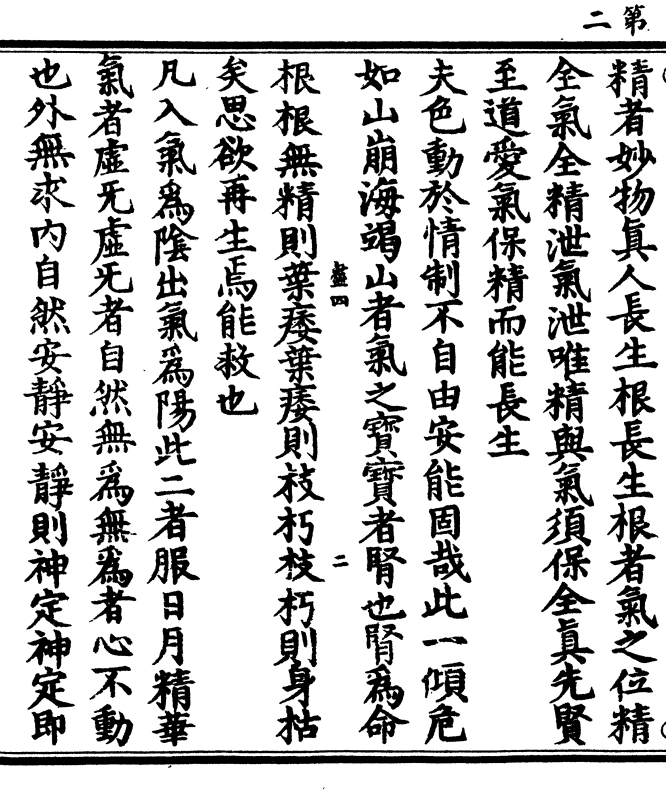 第二
精者妙物真人長生根長生根者氣之位精
全氣全精泄氣泄唯精與氣須保全真先賢
至道愛氣保精而能長生
夫色動於情制不自由安能固哉此一傾危
如山崩海竭山者氣之寶寶者腎也腎為命
根根無精則葉痿葉痿則枝朽枝朽則身枯
盡四
二
矣思欲再生焉能救也
凡入氣為陰出氣為陽此二者服日月精華
氣者虛无虛无者自然無為無為者心不動
也外無求内自然安靜安靜則神定神定即